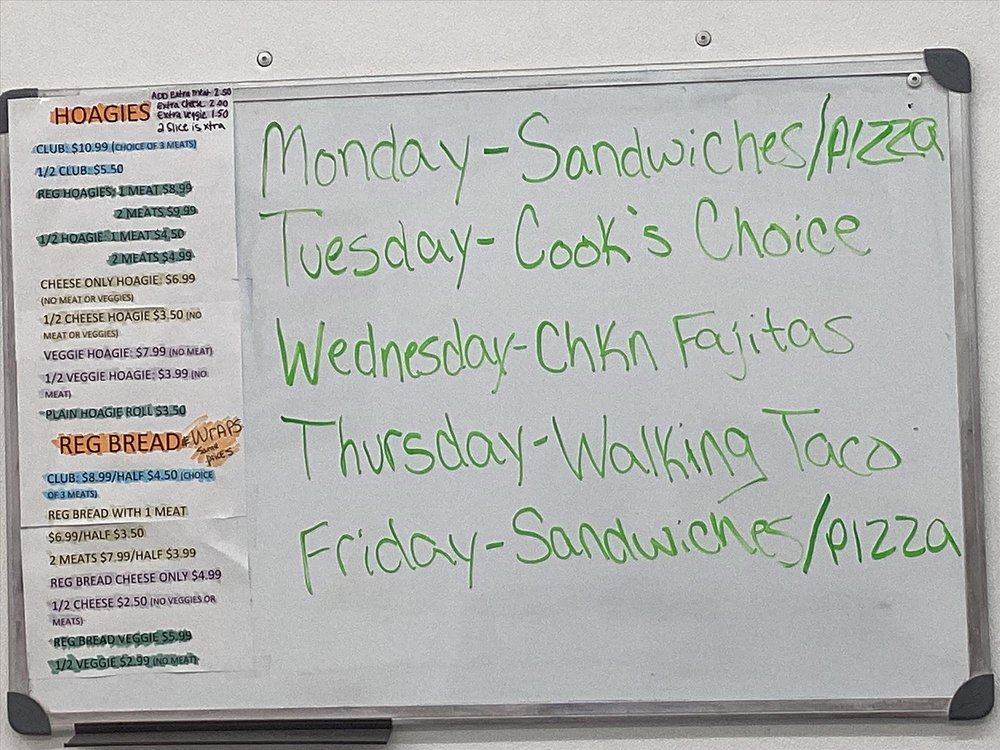 HOAGIES
ADD Extra meat 2.50
Extra Chese 2.00
Extra Veggie 1.50
2 Slice is xtra
CLUB: $10.99 (CHOICE OF 3 MEATS)
1/2 CLUB: $5.50
REG HOAGIES: 1 MEAT $8.99
2 MEATS $9.99
1/2 HOAGIE: 1 MEAT $4.50
2 MEATS $4.99
CHEESE ONLY HOAGIE: $6.99
(NO MEAT OR VEGGIES)
1/2 CHEESE HOAGIE $3.50 (NO
MEAT OR VEGGIES)
VEGGIE HOAGIE: $7.99 (NO MEAT)
1/2 VEGGIE HOAGIE: $3.99 (NO
MEAT)
PLAIN HOAGIE ROLL $3.50
REG BREAD
WRAPS
Same
PRICES
CLUB: $8.99/HALF $4.50 (CHOICE
OF 3 MEATS)
REG BREAD WITH 1 MEAT
$6.99/HALF $3.50
2 MEATS $7.99/HALF $3.99
REG BREAD CHEESE ONLY $4.99
1/2 CHEESE $2.50 (NO VEGGIES OR
MEATS)
REG BREAD VEGGIE $5.99
1/2 VEGGIE $2.99 (NO MEAT)
Monday-Sandwiches/pizza
Tuesday-Cook's Choice
Wednesday-Chkn Fajitas
Thursday-Walking Taco
Friday-Sandwiches/pizza